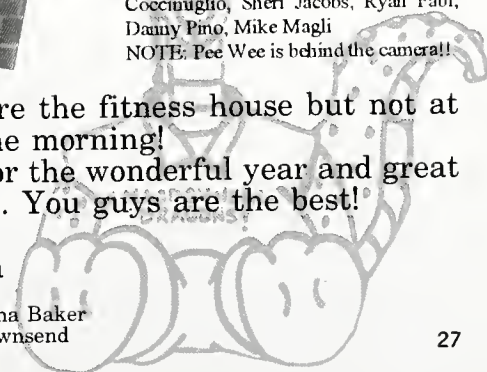 Coccimiglio, Sheri Jacobs, Ryan Paul,
Danny Pino, Mike Magli
NOTE: Pee Wee is behind the camera!!
re the fitness house but not at
e morning!
or the wonderful year and great
. You guys are the best!
DRAGONS!
na Baker
wnsend
27